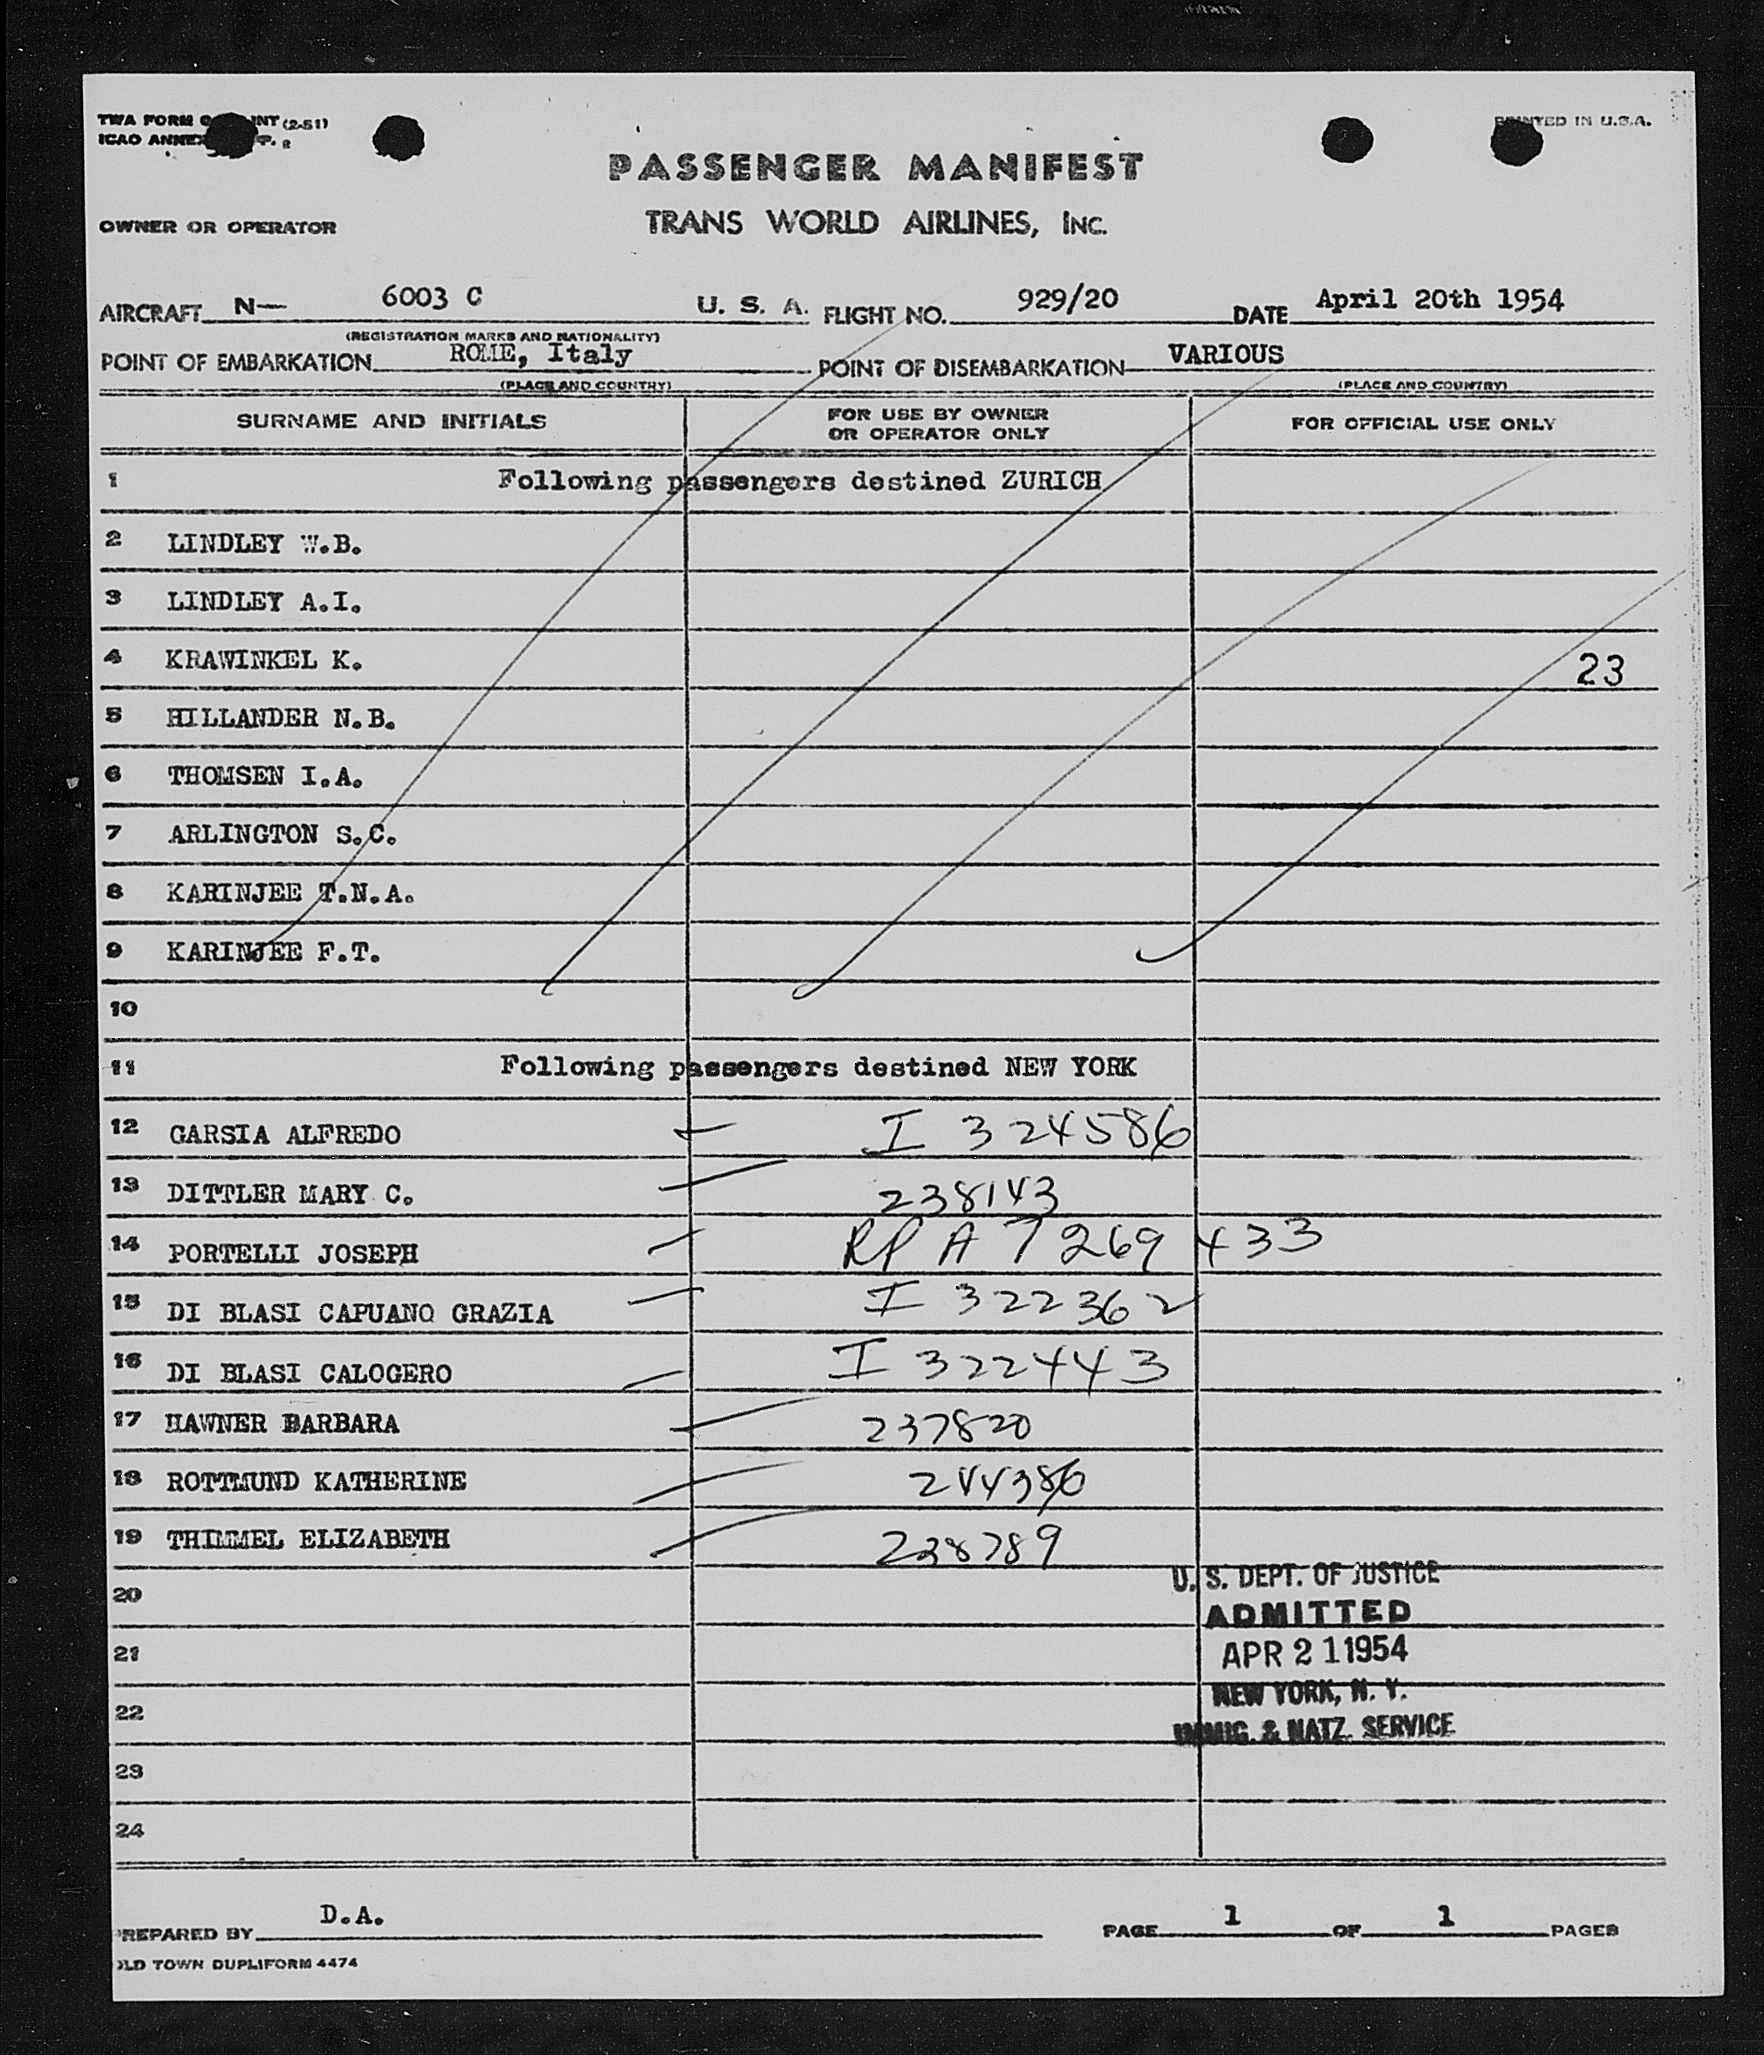 TWA FORM INT (2-51)
ICAO ANNEX
PRINTED IN U.S.A.
PASSENGER MANIFEST
OWNER OR OPERATOR TRANS WORLD AIRLINES, INC.
AIRCRAFT N— 6003 C U. S. A. FLIGHT NO. 929/20 DATE April 20th 1954
(REGISTRATION MARKS AND NATIONALITY)
POINT OF EMBARKATION ROME, Italy POINT OF DISEMBARKATION VARIOUS
(PLACE AND COUNTRY) (PLACE AND COUNTRY)
SURNAME AND INITIALS FOR USE BY OWNER OR OPERATOR ONLY FOR OFFICIAL USE ONLY
1 Following passengers destined ZURICH
2 LINDLEY W.B.
3 LINDLEY A.I.
4 KRAWINKEL K. 23
5 HILLANDER N.B.
6 THOMSEN I.A.
7 ARLINGTON S.C.
8 KARINJEE T.N.A.
9 KARINJEE F.T.
10
11 Following passengers destined NEW YORK
12 GARSIA ALFREDO I 324586
13 DITTLER MARY C. 238143
14 PORTELLI JOSEPH RP A 7 269 433
15 DI BLASI CAPUANO GRAZIA I 322362
16 DI BLASI CALOGERO I 322443
17 HAWNER BARBARA 237820
18 ROTTMUND KATHERINE 244386
19 THIMMEL ELIZABETH 238789
20
21
22
23
24
U. S. DEPT. OF JUSTICE
ADMITTED
APR 21 1954
NEW YORK, N. Y.
IMMIG. & NATZ. SERVICE
PREPARED BY D.A. PAGE 1 OF 1 PAGES
OLD TOWN DUPLIFORM 4474